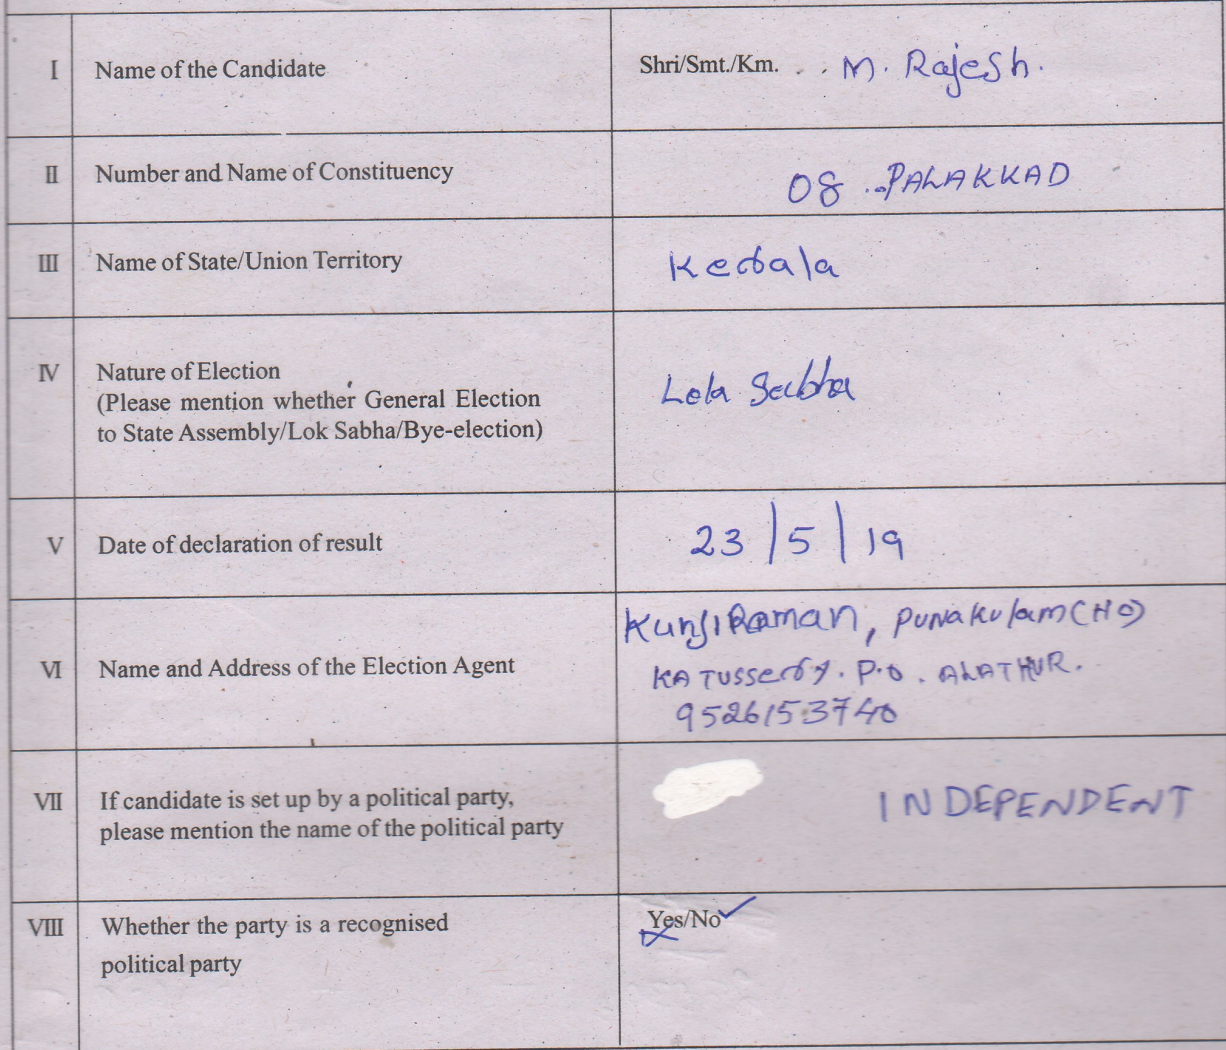 I Name of the Candidate Shri/Smt./Km. . . . M. Rajesh.
II Number and Name of Constituency 08 .. PALAKKAD
III Name of State/Union Territory Kerala
IV Nature of Election
(Please mention whether General Election
to State Assembly/Lok Sabha/Bye-election)
Lola Sabha
V Date of declaration of result 23/5/19
VI Name and Address of the Election Agent
KunjiRaman, PUNAKulam (HO)
KATUSSery. P.O. ALATHUR.
9526153740
VII If candidate is set up by a political party,
please mention the name of the political party
INDEPENDENT
VIII Whether the party is a recognised
political party
Yes/No